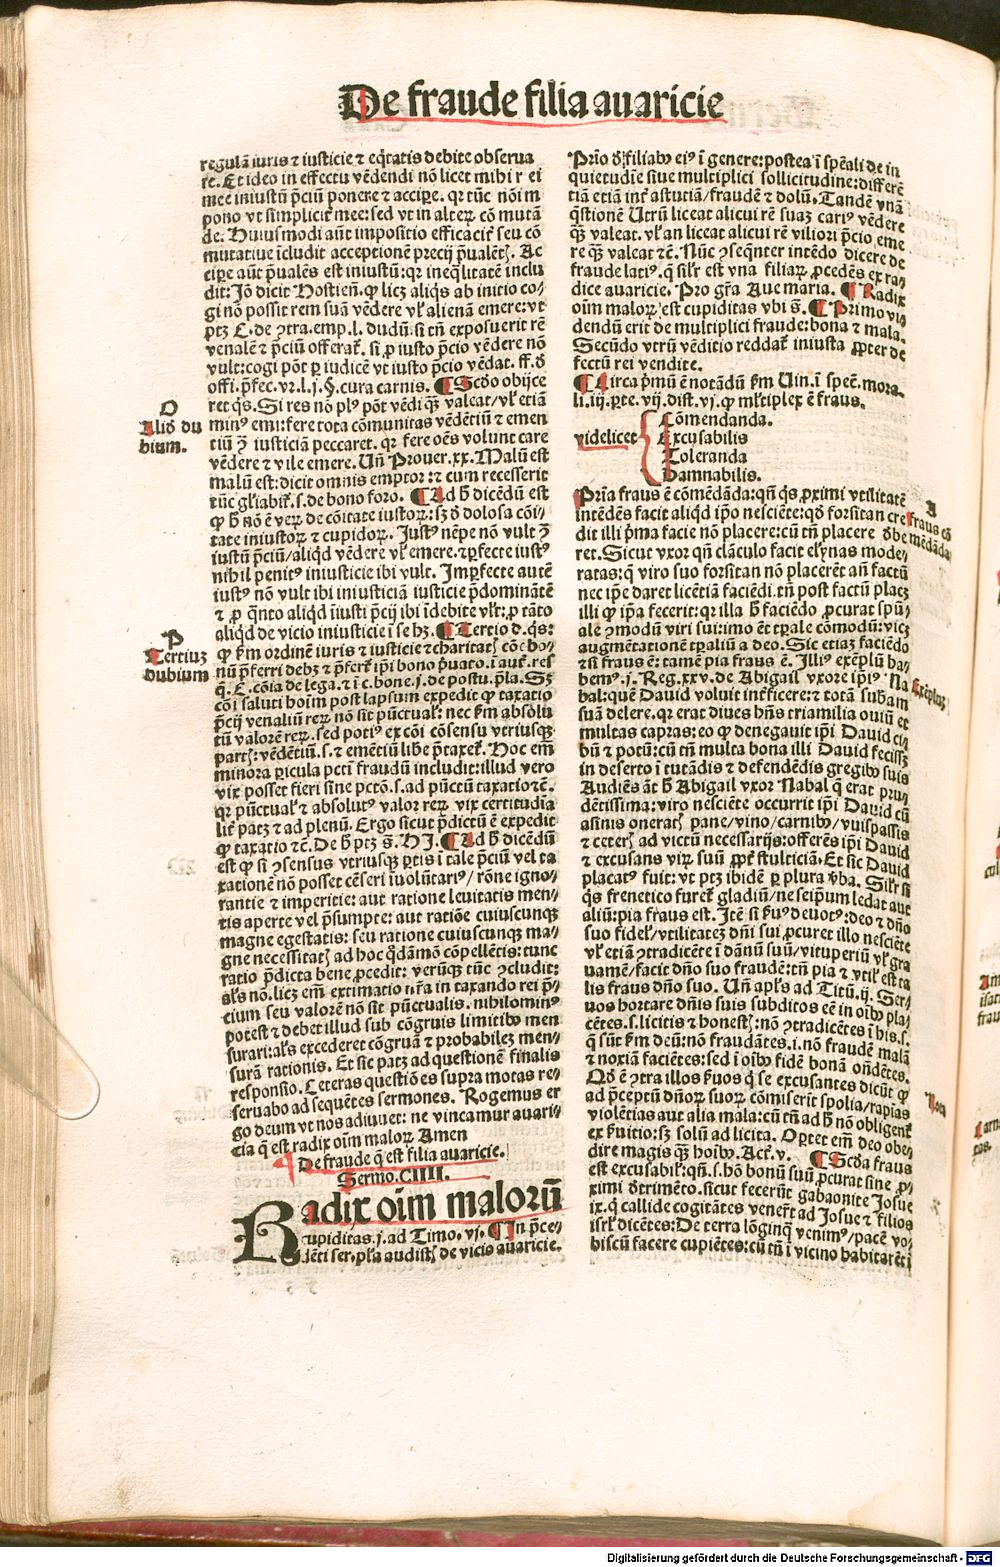 De fraude filia auaricie
regulā iuris ⁊ iusticie ⁊ eq̄tatis debite obserua
re. Et ideo in effectu vēdendi nō licet mihi r ei
mee iniustū p̄ciū ponere ⁊ accipe. qr tūc nō im
pono vt simplicit̄ mee: sed vt in alteꝝ cō mutā
de. Huiusmodi aūt impositio efficacit̄ seu cō
mutatiue īcludit acceptionē precij p̄ualēt. Ac
cipe aūt p̄ualēs est iniustū: qr ineq̄litatē inclu
dit: Jō dicit Hostieñ. ꝙ licꝫ aliqs ab initio co-
gi nō possit rem suā vēdere vl̓ alienā emere: vt
ptꝫ C. de ꝯtra. emp. l. dudū: si tn̄ exposuerit rē
venalē ⁊ p̄ciū offerat̄. si p iusto p̄cio vēdere nō
vult: cogi pōt ꝑ iudicē vt iusto p̄cio vēdat. ff. ð
offi. p̄fec. vr. l. j. §. cura carnis. ¶ Scðo obijce
ret qs. Si res nō pl⁹ pōt vēdi qꝫ valeat/ vl̓ etiā
min⁹ emi: fere tota cōmunitas vēdētiū ⁊ emen
tiū ꝯ̄ iusticiā peccaret. qr fere oēs volunt care
vēdere ⁊ vile emere. Uñ Prouer. xx. Malū est
malū est: dicit omnis emptor: ⁊ cum recesserit
tūc gl̓iabit̄. s. de bono foro. ¶ Ad h̄ dicēdū est
ꝙ h̄ nō ē veꝝ de cōitate iustoꝝ: sꝫ ð dolosa cōi-
tate iniustoꝝ ⁊ cupidoꝝ. Just⁹ nēpe nō vult ꝯ̄
iustū p̄ciū/ aliqd vēdere vl̓ emere. ⁊ ꝑfecte iust⁹
nihil penit⁹ iniusticie ibi vult. Imꝑfecte autē
iust⁹ nō vult ibi iniusticiā iusticie p̄dominātē
⁊ ꝓ qnto aliqd iiusti p̄cij ibi īdebite vl̓t: ꝓ tāto
aliqd de vicio iniusticie ī se hꝫ. ¶ Tercio d. qs:
ꝙ ẜm ordinē iuris ⁊ iusticie ⁊ charitat cōe bo-
nū p̄ferri debꝫ ⁊ p̄fert̄ ip̄i bono p̄uato. ī aut̄. res
q̄. C. cōia de lega. ⁊ ī c. bone. j. de postu. p̄la. Sꝫ
cōi saluti hoīm post lapsum expedit ꝙ taxatio
p̄cij venaliū reꝝ nō sit pūctual: nec ẜm absolu
tū valorē reꝝ. sed poti⁹ ex cōi cōsensu vtriusqꝫ
part: vēdētiū. s. ⁊ emētiū libe p̄taxet̄. Hoc em̄
minora ꝑicula pctī fraudū includit: illud vero
vix posset fieri sine pctō. s. ad pūctū taxatio ⁊c̄.
qr pūctual ⁊ absolut⁹ valor reꝝ vix certitudīa
lit̄ patꝫ ⁊ ad plenū. Ergo sicut p̄dictū ē expedit
ꝙ taxatio ⁊c̄. De h̄ ptꝫ s̄. HJ. ¶ Ad h̄ dicēdū
est ꝙ si ꝯsensus vtriusqꝫ ptis ī tale p̄ciū vel ta
xationē nō posset cēseri īuolūtari⁹/ rōne igno-
rantie ⁊ imperitie: aut ratione leuitatis men-
tis aperte vel p̄sumpte: aut ratiōe cuiuscunqꝫ
magne egestatis: seu ratione cuiuscunqꝫ ma-
gne necessitat ad hoc qdāmō cōpellētis: tunc
ratio p̄dicta bene ꝓcedit: verūqꝫ tūc ꝯcludit:
al̓s nō. licꝫ em̄ extimatio nr̄a in taxando rei p̄-
cium seu valorē nō sit pūctualis. nihilomin⁹
potest ⁊ debet illud sub cōgruis limitibꝰ men
surari: al̓s excederet cōgruā ⁊ probabilez men-
surā rationis. Et sic patꝫ ad questionē finalis
responsio. Ceteras questiōes supra motas re-
seruabo ad sequētes sermones. Rogemus er
go deum vt nos adiuuet: ne vincamur auari-
cia q̄ est radix oīm maloꝝ Amen
¶ De fraude q̄ est filia auaricie.
Sermo. CIIII.
Radix oīm malorū
cupiditas. j. ad Timo. vj. ¶ In p̄ce-
dēti ser. pl̓a audist de vicio auaricie.
O
Aliud du
bium.
P
Tertiuꝫ
dubium
Prīo ð filiabꝰ ei⁹ ī genere: postea ī spēali de in
quietudīe siue multiplici sollicitudine: differē
tiā etiā int̄ astutiā/ fraudē ⁊ dolū. Tandē vnā
q̄stionē Utrū liceat alicui rē suaꝫ cari⁹ vēdere
qꝫ valeat. vl̓ an liceat alicui rē viliori p̄cio eme
re qꝫ valeat ⁊c̄. Nūc ꝯseqnter intēdo dicere de
fraude lati⁹. q sil̓r est vna filiaꝝ ꝓcedēs ex ra-
dice auaricie. Pro gr̄a Aue maria. ¶ Radix
oīm maloꝝ est cupiditas vbi s̄. ¶ Primo vi-
dendū erit de multiplici fraude: bona ⁊ mala.
Secūdo vtrū vēditio reddat̄ iniusta ꝓpter de
fectū rei vendite.
¶ Circa p̄mū ē notādū ẜm Uin. ī spec̄. mora.
li. iij. ꝑte. vij. dist. vj. ꝙ ml̓tiplex ē fraus.
videlicet
Cōmendanda.
Excusabilis
Toleranda
Damnabilis.
Prīa fraus ē cōmēdāda: qn̄ qs ꝓximi vtilitatē
intēdēs facit aliqd ip̄o nesciēte: qð forsitan cre
dit illi p̄ma facie nō placere: cū tn̄ placere ðbe
ret. Sicut vxor qn̄ clāculo facit el̓ynas mode-
ratas: q̄ viro suo forsitan nō placerēt añ factū
nec ip̄e daret licētiā faciēdi. tn̄ post factū placꝫ
illi ꝙ ip̄a fecerit: qr illa h̄ faciēdo ꝓcurat spū-
ale ꝯmodū viri sui: imo ēt tꝑale cōmodū: vicꝫ
augmētationē tꝑaliū a deo. Sic etiaꝫ faciēdo
⁊ si fraus ē: tamē pia fraus ē. Illi⁹ exēplū ha-
bem⁹. j. Reg. xxv. de Abigail vxore ip̄i⁹ Na
bal: quē Dauid voluit inter̄ficere: ⁊ totā subām
suā delere. qr erat diues hn̄s triamilia ouiū et
multas capras: eo ꝙ denegauit ip̄i Dauid ci-
bū ⁊ potū: cū tn̄ multa bona illi Dauid fecissꝫ
in deserto ī tutādis ⁊ defendēdis gregibꝰ suis
Audiēs āt h̄ Abigail vxor Nabal q̄ erat pru-
dētissima: viro nesciēte occurrit ip̄i Dauid cū
asinis onerat pane/ vino/ carnibꝰ/ vuispassis
⁊ ceter ad victū necessarijs: offerēs ip̄i Dauid
⁊ excusans viꝝ suū ꝓpt̄ stulticiā. Et sic Dauid
placat⁹ fuit: vt ptꝫ ibidē ꝑ plura v̄ba. Sil̓r si
qs frenetico furet̄ gladiū/ ne seip̄um ledat aut
aliū: pia fraus est. Itē si ẜu⁹ deuot⁹: deo ⁊ dn̄o
suo fidel/ vtilitateꝫ dn̄i sui ꝓcuret illo nesciēte
vl̓ etiā ꝯtradicēte ī dānū suū/ vituperiū vl̓ gra
uamē/ facit dn̄o suo fraudē: tn̄ pia ⁊ vtil est ta
lis fraus dn̄o suo. Uñ apl̓s ad Titū. ij. Ser-
uos hortare dn̄is suis subditos eē in oībꝰ pla-
cētes. s. licitis ⁊ honest: nō ꝯtradicētes ī his. s.
q̄ sūt ẜm deū: nō fraudātes. i. nō fraudē malā
⁊ noxiā faciētes: sed ī oībꝰ fidē bonā oñdētes.
Qð ē ꝯtra illos ẜuos q̄ se excusantes dicūt ꝙ
ad p̄ceptū dn̄oꝝ suoꝝ cōmiserit spolia/ rapīas
violētias aut alia mala: cū tn̄ ad h̄ nō obligent̄
ex ẜuitio: sꝫ solū ad licita. Oꝑtet em̄ deo obe-
dire magis qꝫ hoībꝰ. Act̄. v. ¶ Scðа fraus
est excusabil: qn̄. s. bonū suū ꝓcurat sine ꝓ-
ximi ðtrimēto. sicut fecerūt gabaonite Josue
ix. q̄ callide cogitātes venerūt ad Josue ⁊ filios
isrl̓ dicētes: De terra lōginq̄ venim⁹/ pacē vo-
biscū facere cupiētes: cū tn̄ ī vicino habitarēt ī
A
fraus cō
mēdāda
Exēpluꝫ
Nota
Digitalisierung gefördert durch die Deutsche Forschungsgemeinschaft - DFG